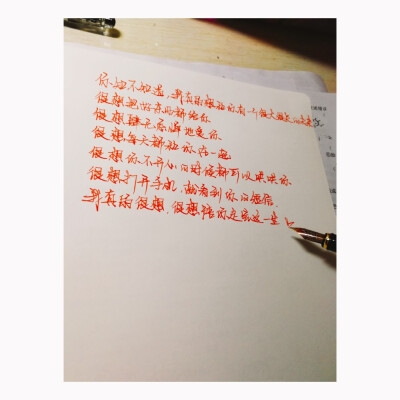 你知不知道,我真的很想和你有一个很大很大的未来
很想把所有的都给你
很想肆无忌惮地爱你
很想每天都和你在一起
很想你不开心的时候都可以哄哄你
很想打开手机,就看到你的短信
我真的很想,很想陪你走完这一生